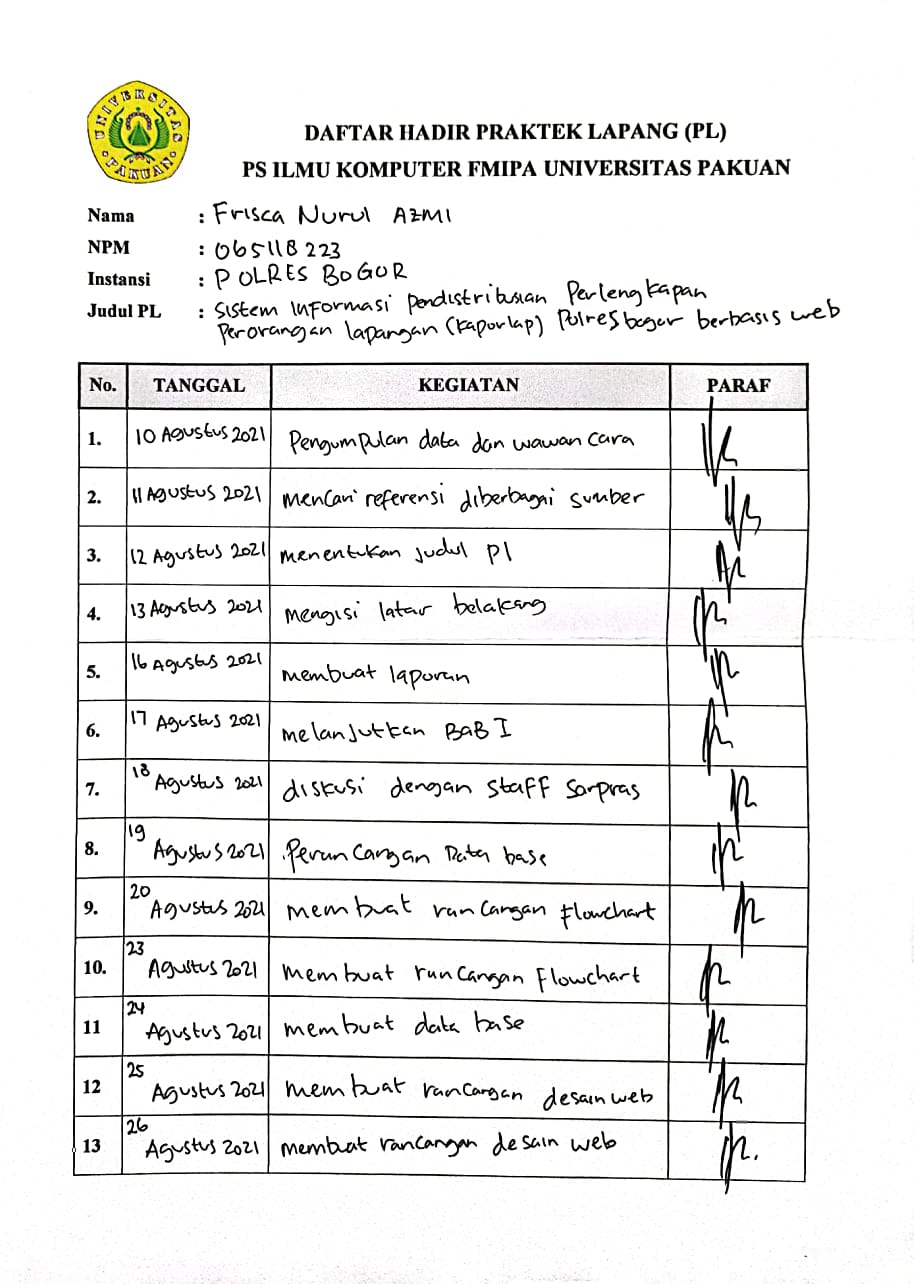 UNIVERSITAS PAKUAN
DAFTAR HADIR PRAKTEK LAPANG (PL)
PS ILMU KOMPUTER FMIPA UNIVERSITAS PAKUAN
Nama : Frisca Nurul AZMI
NPM : 065118 223
Instansi : POLRES BOGOR
Judul PL : Sistem Informasi pendistribusian Perlengkapan
Perorangan lapangan (kaporlap) Polres bogor berbasis web
No. TANGGAL KEGIATAN PARAF
1. 10 Agustus 2021 Pengumpulan data dan wawancara
2. 11 Agustus 2021 mencari referensi diberbagai sumber
3. 12 Agustus 2021 menentukan judul pl
4. 13 Agustus 2021 mengisi latar belakang
5. 16 Agustus 2021 membuat laporan
6. 17 Agustus 2021 melanjutkan BAB I
7. 18 Agustus 2021 diskusi dengan staff sarpras
8. 19 Agustus 2021 Perancangan Data base
9. 20 Agustus 2021 membuat rancangan flowchart
10. 23 Agustus 2021 membuat rancangan flowchart
11 24 Agustus 2021 membuat data base
12 25 Agustus 2021 membuat rancangan desain web
13 26 Agustus 2021 membuat rancangan desain web